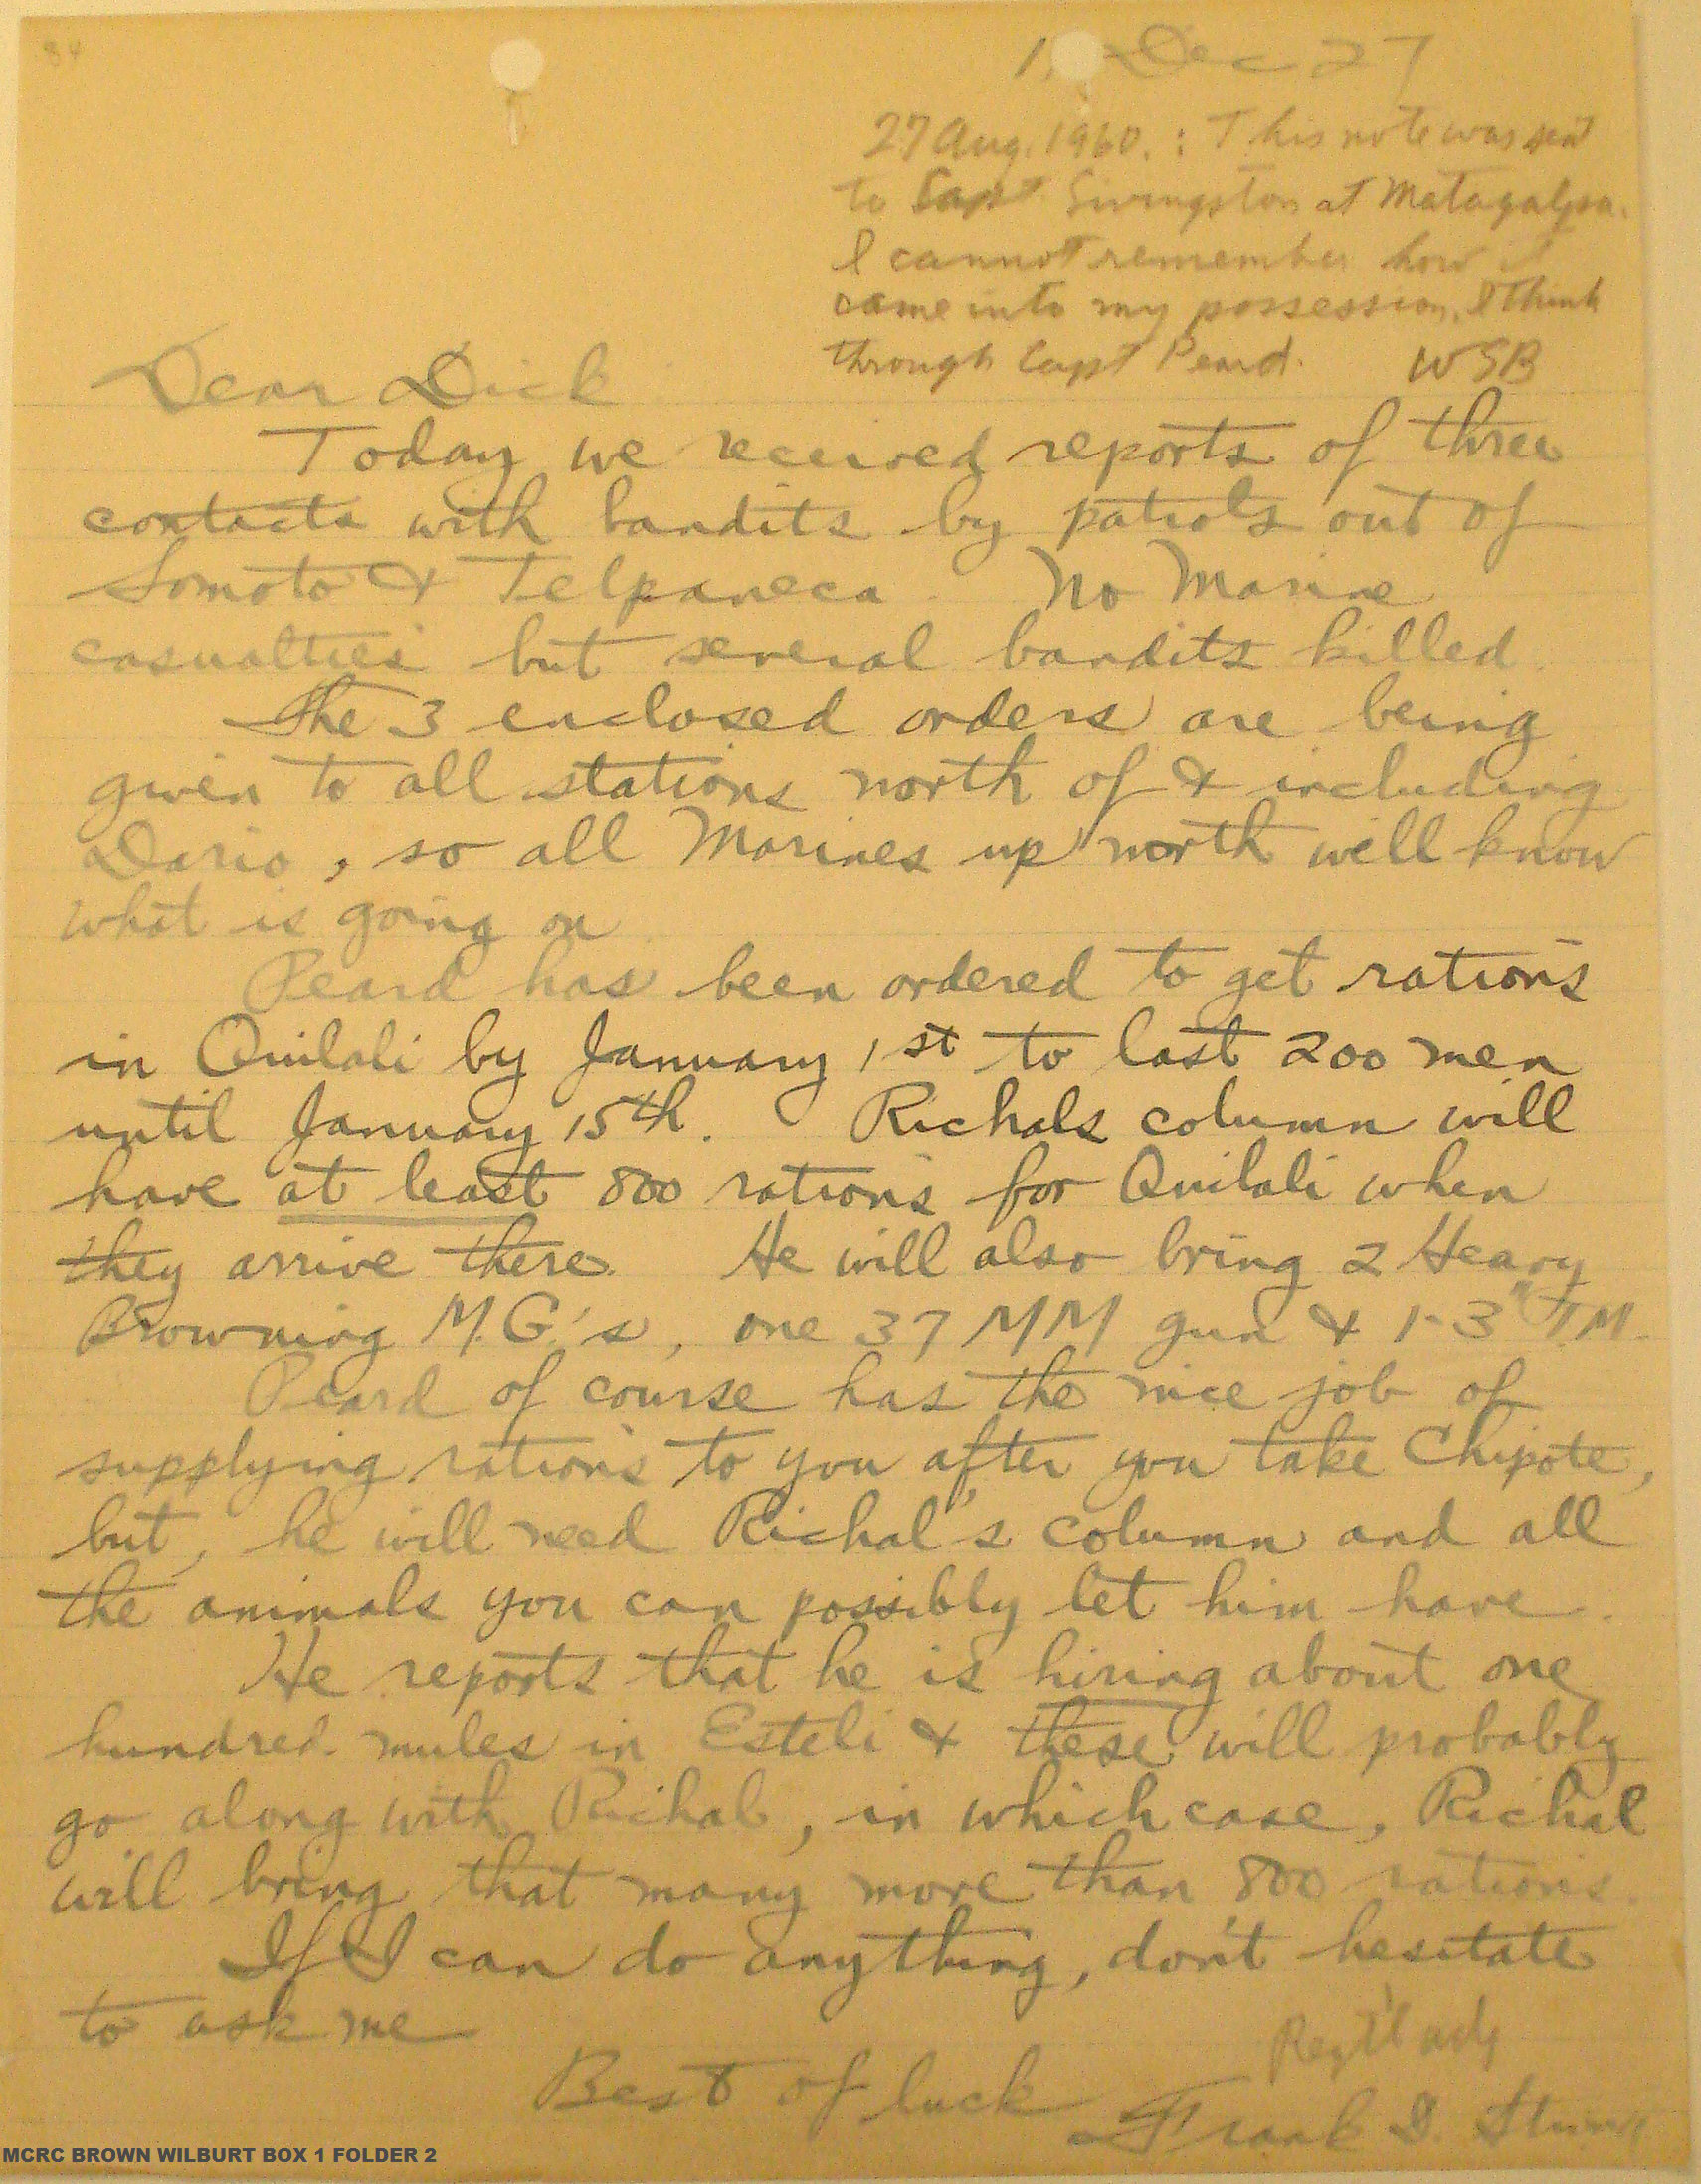 84
Dec 27
27 Aug. 1960. : This note was sent
to Capt. Livingston at Matagalpa.
I cannot remember how it
came into my possession, I think
through Capt Peard. WSB
Dear Dick
Today we received reports of three
contacts with bandits by patrols out of
Somoto & Telpaneca. No Marine
casualties but several bandits killed.
The 3 enclosed orders are being
given to all stations north of & including
Dario, so all Marines up north will know
what is going on
Peard has been ordered to get rations
in Quilali by January 1st to last 200 men
until January 15th. Richals column will
have at least 800 rations for Quilali when
they arrive there. He will also bring 2 Heavy
Browning M.G.'s, one 37 MM gun & 1-3" T.M.
Peard of course has the nice job of
supplying rations to you after you take Chipote,
but, he will need Richal's column and all
the animals you can possibly let him have.
He reports that he is hiring about one
hundred mules in Esteli & these will probably
go along with Richal, in which case, Richal
will bring that many more than 800 rations.
If I can do anything, don't hesitate
to ask me
Regt'l adj
Best of luck Frank D.
MCRC BROWN WILBURT BOX 1 FOLDER 2